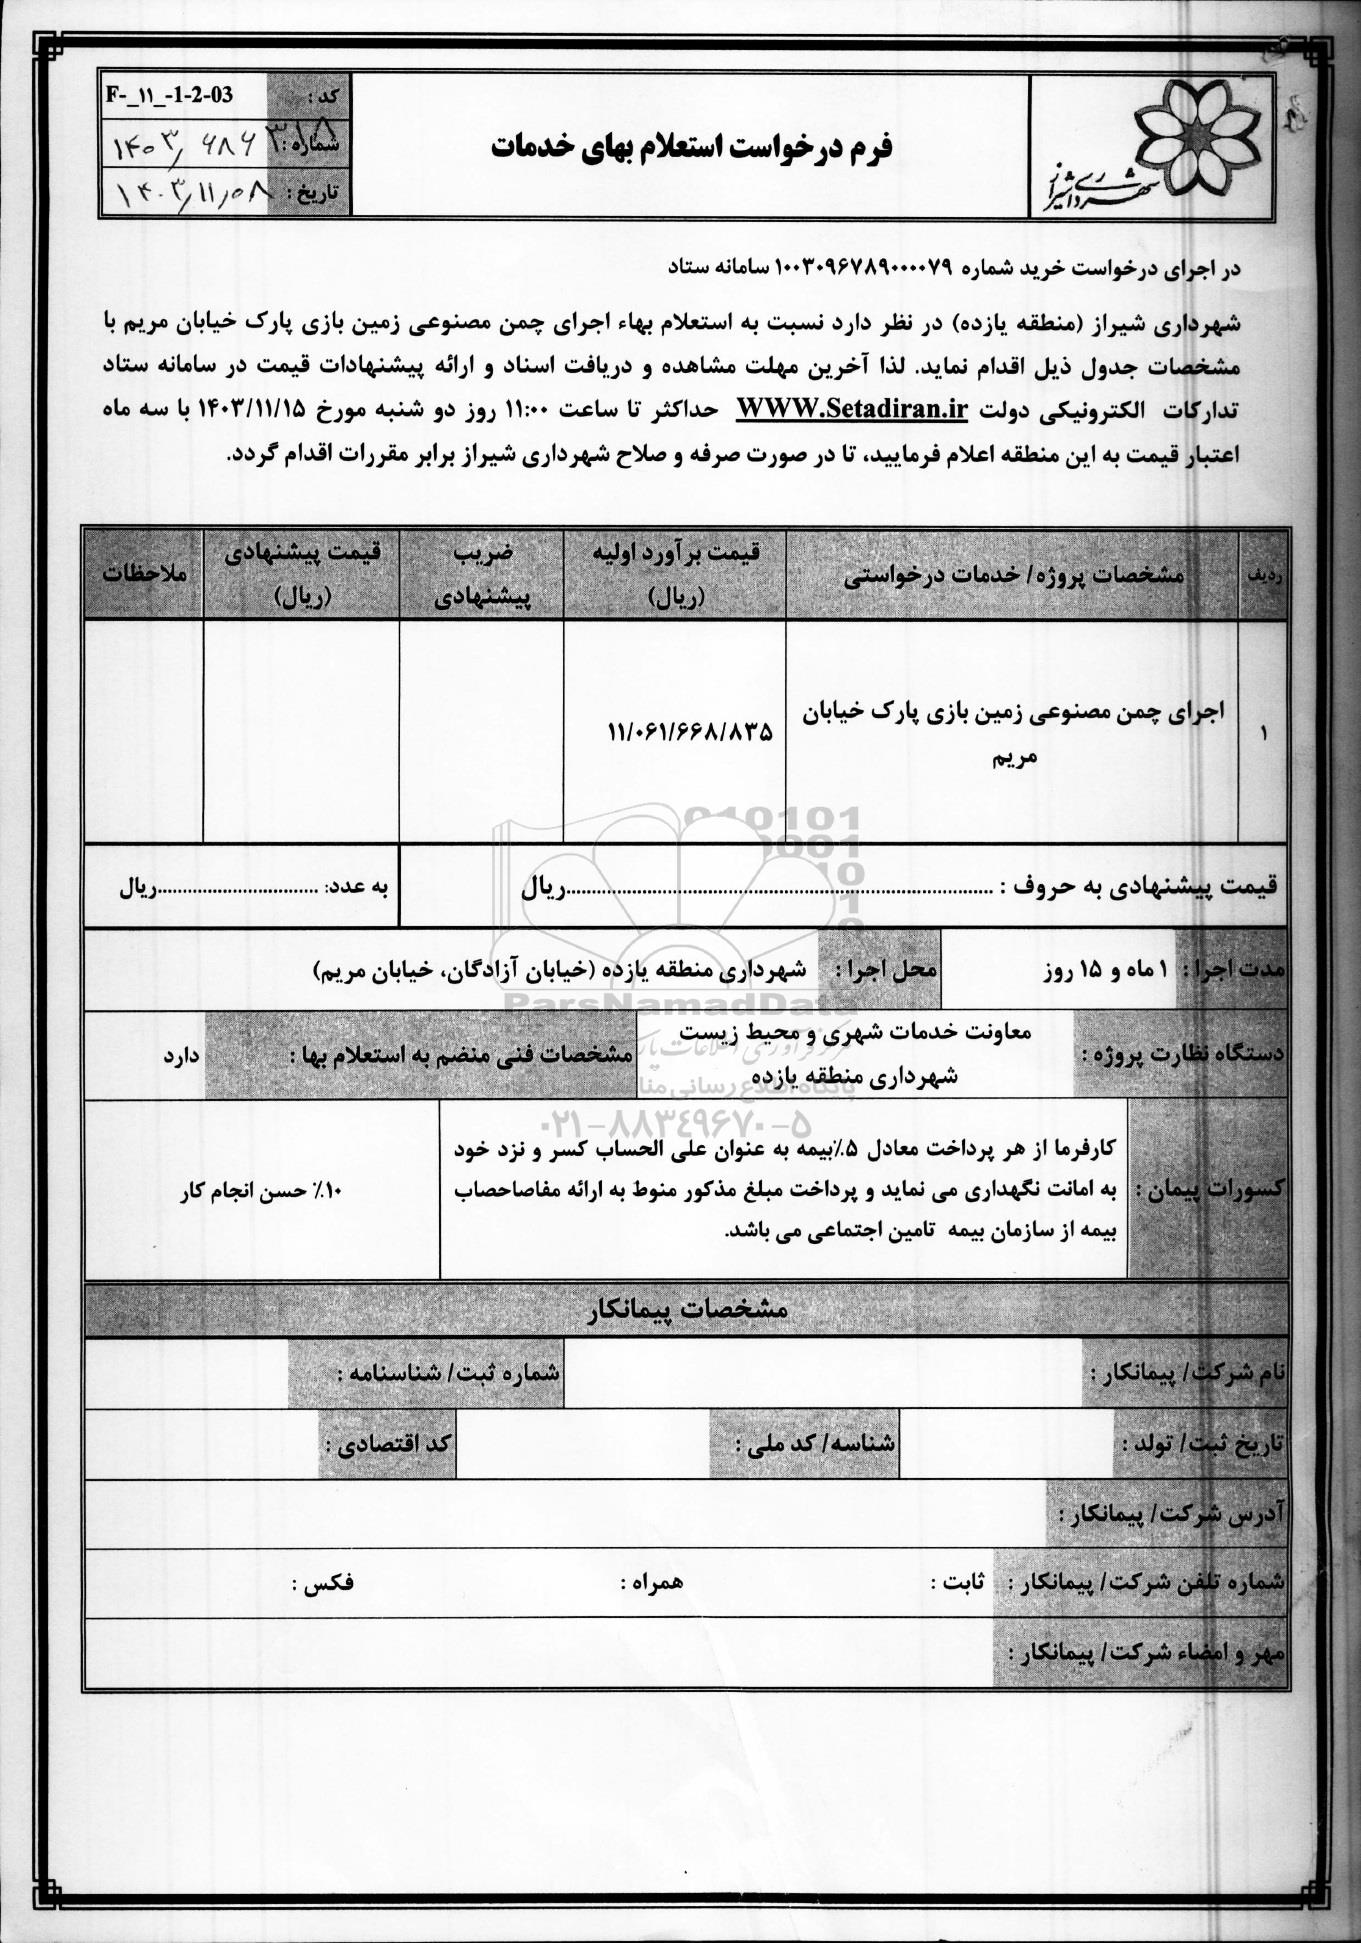 شهرداری شیراز
فرم درخواست استعلام بهای خدمات
کد : F-_۱۱_-1-2-03
شماره :
تاریخ : ۱۴۰۳/۱۱/۰۸
در اجرای درخواست خرید شماره ۱۰۰۳۰۹۶۷۸۹۰۰۰۰۷۹ سامانه ستاد
شهرداری شیراز (منطقه یازده) در نظر دارد نسبت به استعلام بهاء اجرای چمن مصنوعی زمین بازی پارک خیابان مریم با
مشخصات جدول ذیل اقدام نماید. لذا آخرین مهلت مشاهده و دریافت اسناد و ارائه پیشنهادات قیمت در سامانه ستاد
تدارکات الکترونیکی دولت WWW.Setadiran.ir حداکثر تا ساعت ۱۱:۰۰ روز دو شنبه مورخ ۱۴۰۳/۱۱/۱۵ با سه ماه
اعتبار قیمت به این منطقه اعلام فرمایید، تا در صورت صرفه و صلاح شهرداری شیراز برابر مقررات اقدام گردد.
ردیف مشخصات پروژه/ خدمات درخواستی قیمت برآورد اولیه (ریال) ضریب پیشنهادی قیمت پیشنهادی (ریال) ملاحظات
۱ اجرای چمن مصنوعی زمین بازی پارک خیابان مریم ۱۱/۰۶۱/۶۶۸/۸۳۵
قیمت پیشنهادی به حروف : ..........ریال به عدد: ..........ریال
مدت اجرا : ۱ ماه و ۱۵ روز محل اجرا : شهرداری منطقه یازده (خیابان آزادگان، خیابان مریم)
ParsNamadData
دستگاه نظارت پروژه : معاونت خدمات شهری و محیط زیست شهرداری منطقه یازده مشخصات فنی منضم به استعلام بها : دارد
۰۲۱-۸۸۳۴۹۶۷۰-۵
کسورات پیمان : کارفرما از هر پرداخت معادل ۵٪بیمه به عنوان علی الحساب کسر و نزد خود
به امانت نگهداری می نماید و پرداخت مبلغ مذکور منوط به ارائه مفاصاحصاب
بیمه از سازمان بیمه تامین اجتماعی می باشد.
۱۰٪ حسن انجام کار
مشخصات پیمانکار
نام شرکت/ پیمانکار : شماره ثبت/ شناسنامه :
تاریخ ثبت/ تولد : شناسه/ کد ملی : کد اقتصادی :
آدرس شرکت/ پیمانکار :
شماره تلفن شرکت/ پیمانکار : ثابت : همراه : فکس :
مهر و امضاء شرکت/ پیمانکار :